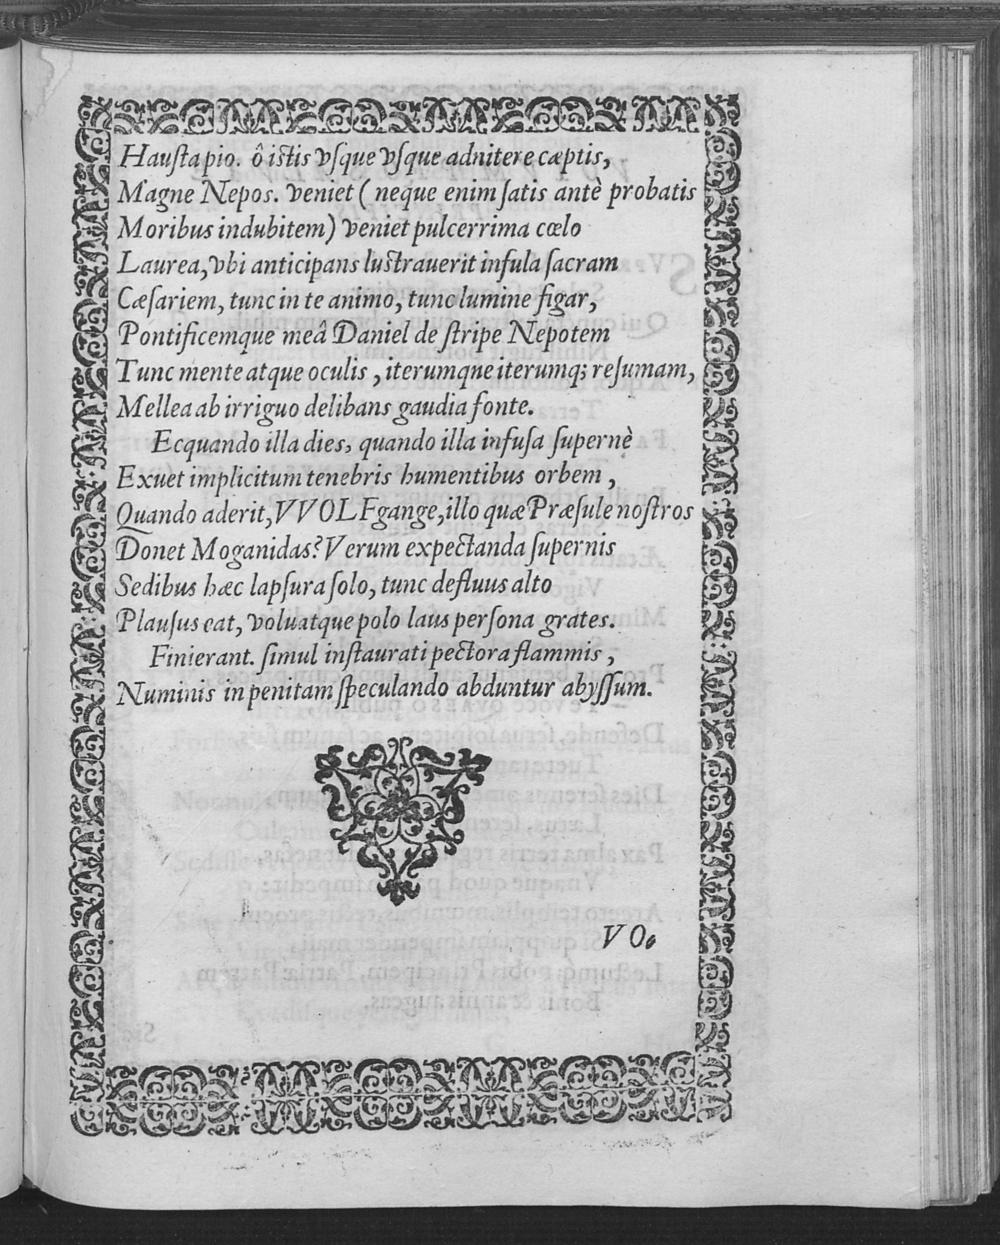 Hauſta pio. ô iſtis vſque vſque adnitere cæptis,
Magne Nepos. veniet (neque enim ſatis antè probatis
Moribus indubitem) veniet pulcerrima cœlo
Laurea, vbi anticipans luſtrauerit infula ſacram
Cæſariem, tunc in te animo, tunc lumine figar,
Pontificemque meâ Daniel de ſtripe Nepotem
Tunc mente atque oculis, iterumque iterumq; reſumam,
Mellea ab irriguo delibans gaudia fonte.
Ecquando illa dies, quando illa infuſa ſupernè
Exuet implicitum tenebris humentibus orbem,
Quando aderit, VVOLFgange, illo quæ Præſule noſtros
Donet Moganidas? Verum expectanda ſupernis
Sedibus hæc lapſura ſolo, tunc defluus alto
Plauſus eat, voluatque polo laus perſona grates.
Finierant. ſimul inſtaurati pectora flammis,
Numinis in penitam ſpeculando abduntur abyſſum.
VO.